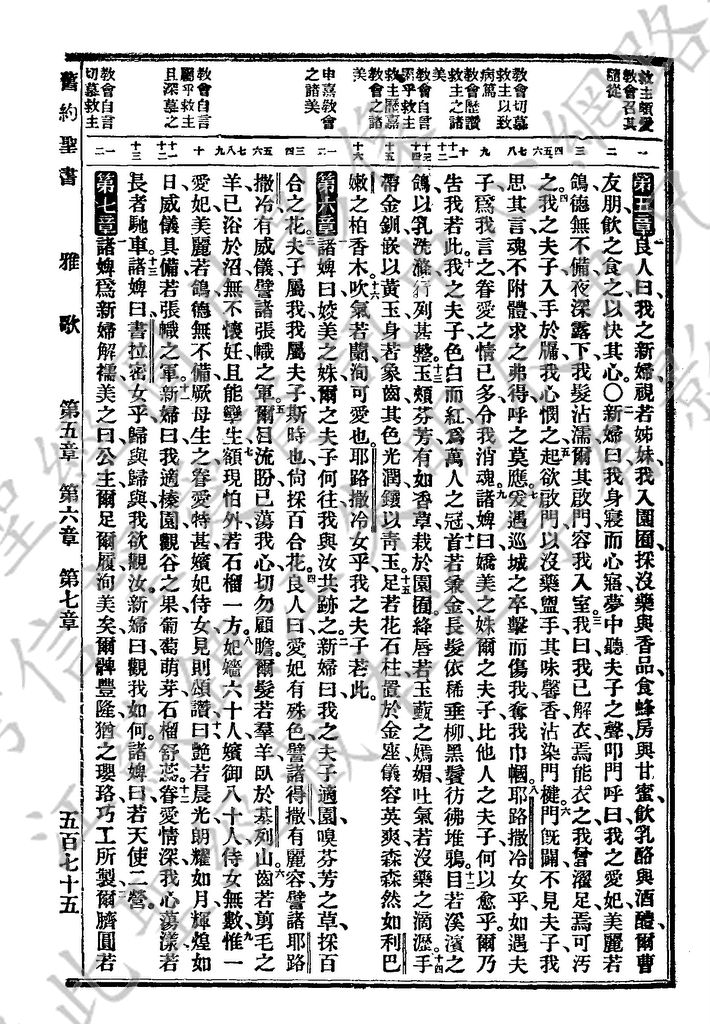 救主頌愛
教會召其
隨從
教會切慕
救主以致
病篤
教會歷讚
救主之諸
美
教會自言
屬乎救主
救主歷嘉
教會之諸
美
申嘉教會
之諸美
教會自言
屬乎救主
且深慕之
教會自言
切慕救主
第五章 一良人曰、我之新婦、視若姊妹、我入園囿、採沒藥與香品、食蜂房與甘蜜、飲乳酪與酒醴、爾曹
友朋、飲之食之、以快其心。〇二新婦曰、我身寢而心寤、夢中聽夫子之聲、叩門呼曰、我之愛妃、美麗若
鴿、德無不備、夜深露下、我髮沾濡、爾其啟門、容我入室、三我曰、我已解衣、焉能衣之、我曾濯足、焉可汚
之。四我之夫子、入手於牖、我心憫之、五起欲啟門、以沒藥盥手、其味馨香、沾染門楗、六門旣闢、不見夫子、我
思其言、魂不附體、求之弗得、呼之莫應。七爰遇巡城之卒、擊而傷我、奪我巾幗、八耶路撒冷女乎、如遇夫
子、爲我言之、眷愛之情已多、令我消魂、九諸婢曰、嬌美之姝、爾之夫子、比他人之夫子、何以愈乎、爾乃
告我若此。十我之夫子、色白而紅、爲萬人之冠、十一首若兼金、長髮依稀垂柳、黑鬒彷彿堆鴉、十二目若溪濱之
鴿、以乳洗滌、行列甚整、十三玉頰芬芳、有如香草、栽於園囿、絳唇若玉䕘之嫣媚、吐氣若沒藥之滴瀝、十四手
帶金釧、嵌以黃玉、身若象齒、其色光潤、鑲以靑玉、十五足若花石柱、置於金座、儀容英爽、森森然如利巴
嫩之柏香木、十六吹氣若蘭、洵可愛也、耶路撒冷女乎、我之夫子若此。
第六章 一諸婢曰、姣美之姝、爾之夫子何往、我與汝共跡之、二新婦曰、我之夫子適園、嗅芬芳之草、採百
合之花、三夫子屬我、我屬夫子、斯時也、尙採百合花。四良人曰、愛妃有殊色、譬諸得撒、有麗容、譬諸耶路
撒冷、有威儀、譬諸張幟之軍、五爾目流盼、已蕩我心、切勿顧瞻、爾髮若羣羊、臥於基列山、六齒若剪毛之
羊、已浴於沼、無不懷妊、且能孿生、七額現帕外、若石榴一方、八妃嬙六十人、嬪御八十人、侍女無數、九惟一
愛妃、美麗若鴿、德無不備、厥母生之、眷愛特甚、嬪妃侍女、見則頌讚曰、十艷若晨光、朗耀如月、輝煌如
日、威儀具備、若張幟之軍、十一新婦曰、我適榛園、觀谷之果、葡萄萌芽、石榴舒蕊、十二眷愛情深、我心蕩漾、若
長者馳車、十三諸婢曰、書拉密女乎、歸與歸與、我欲觀汝、新婦曰、觀我如何、諸婢曰、若天使二營。
第七章 一諸婢爲新婦解襦、美之曰、公主、爾足爾履、洵美矣、爾髀豐隆、猶之瓔珞、巧工所製、二爾臍圓若
舊約聖書 雅歌 第五章 第六章 第七章 五百七十五